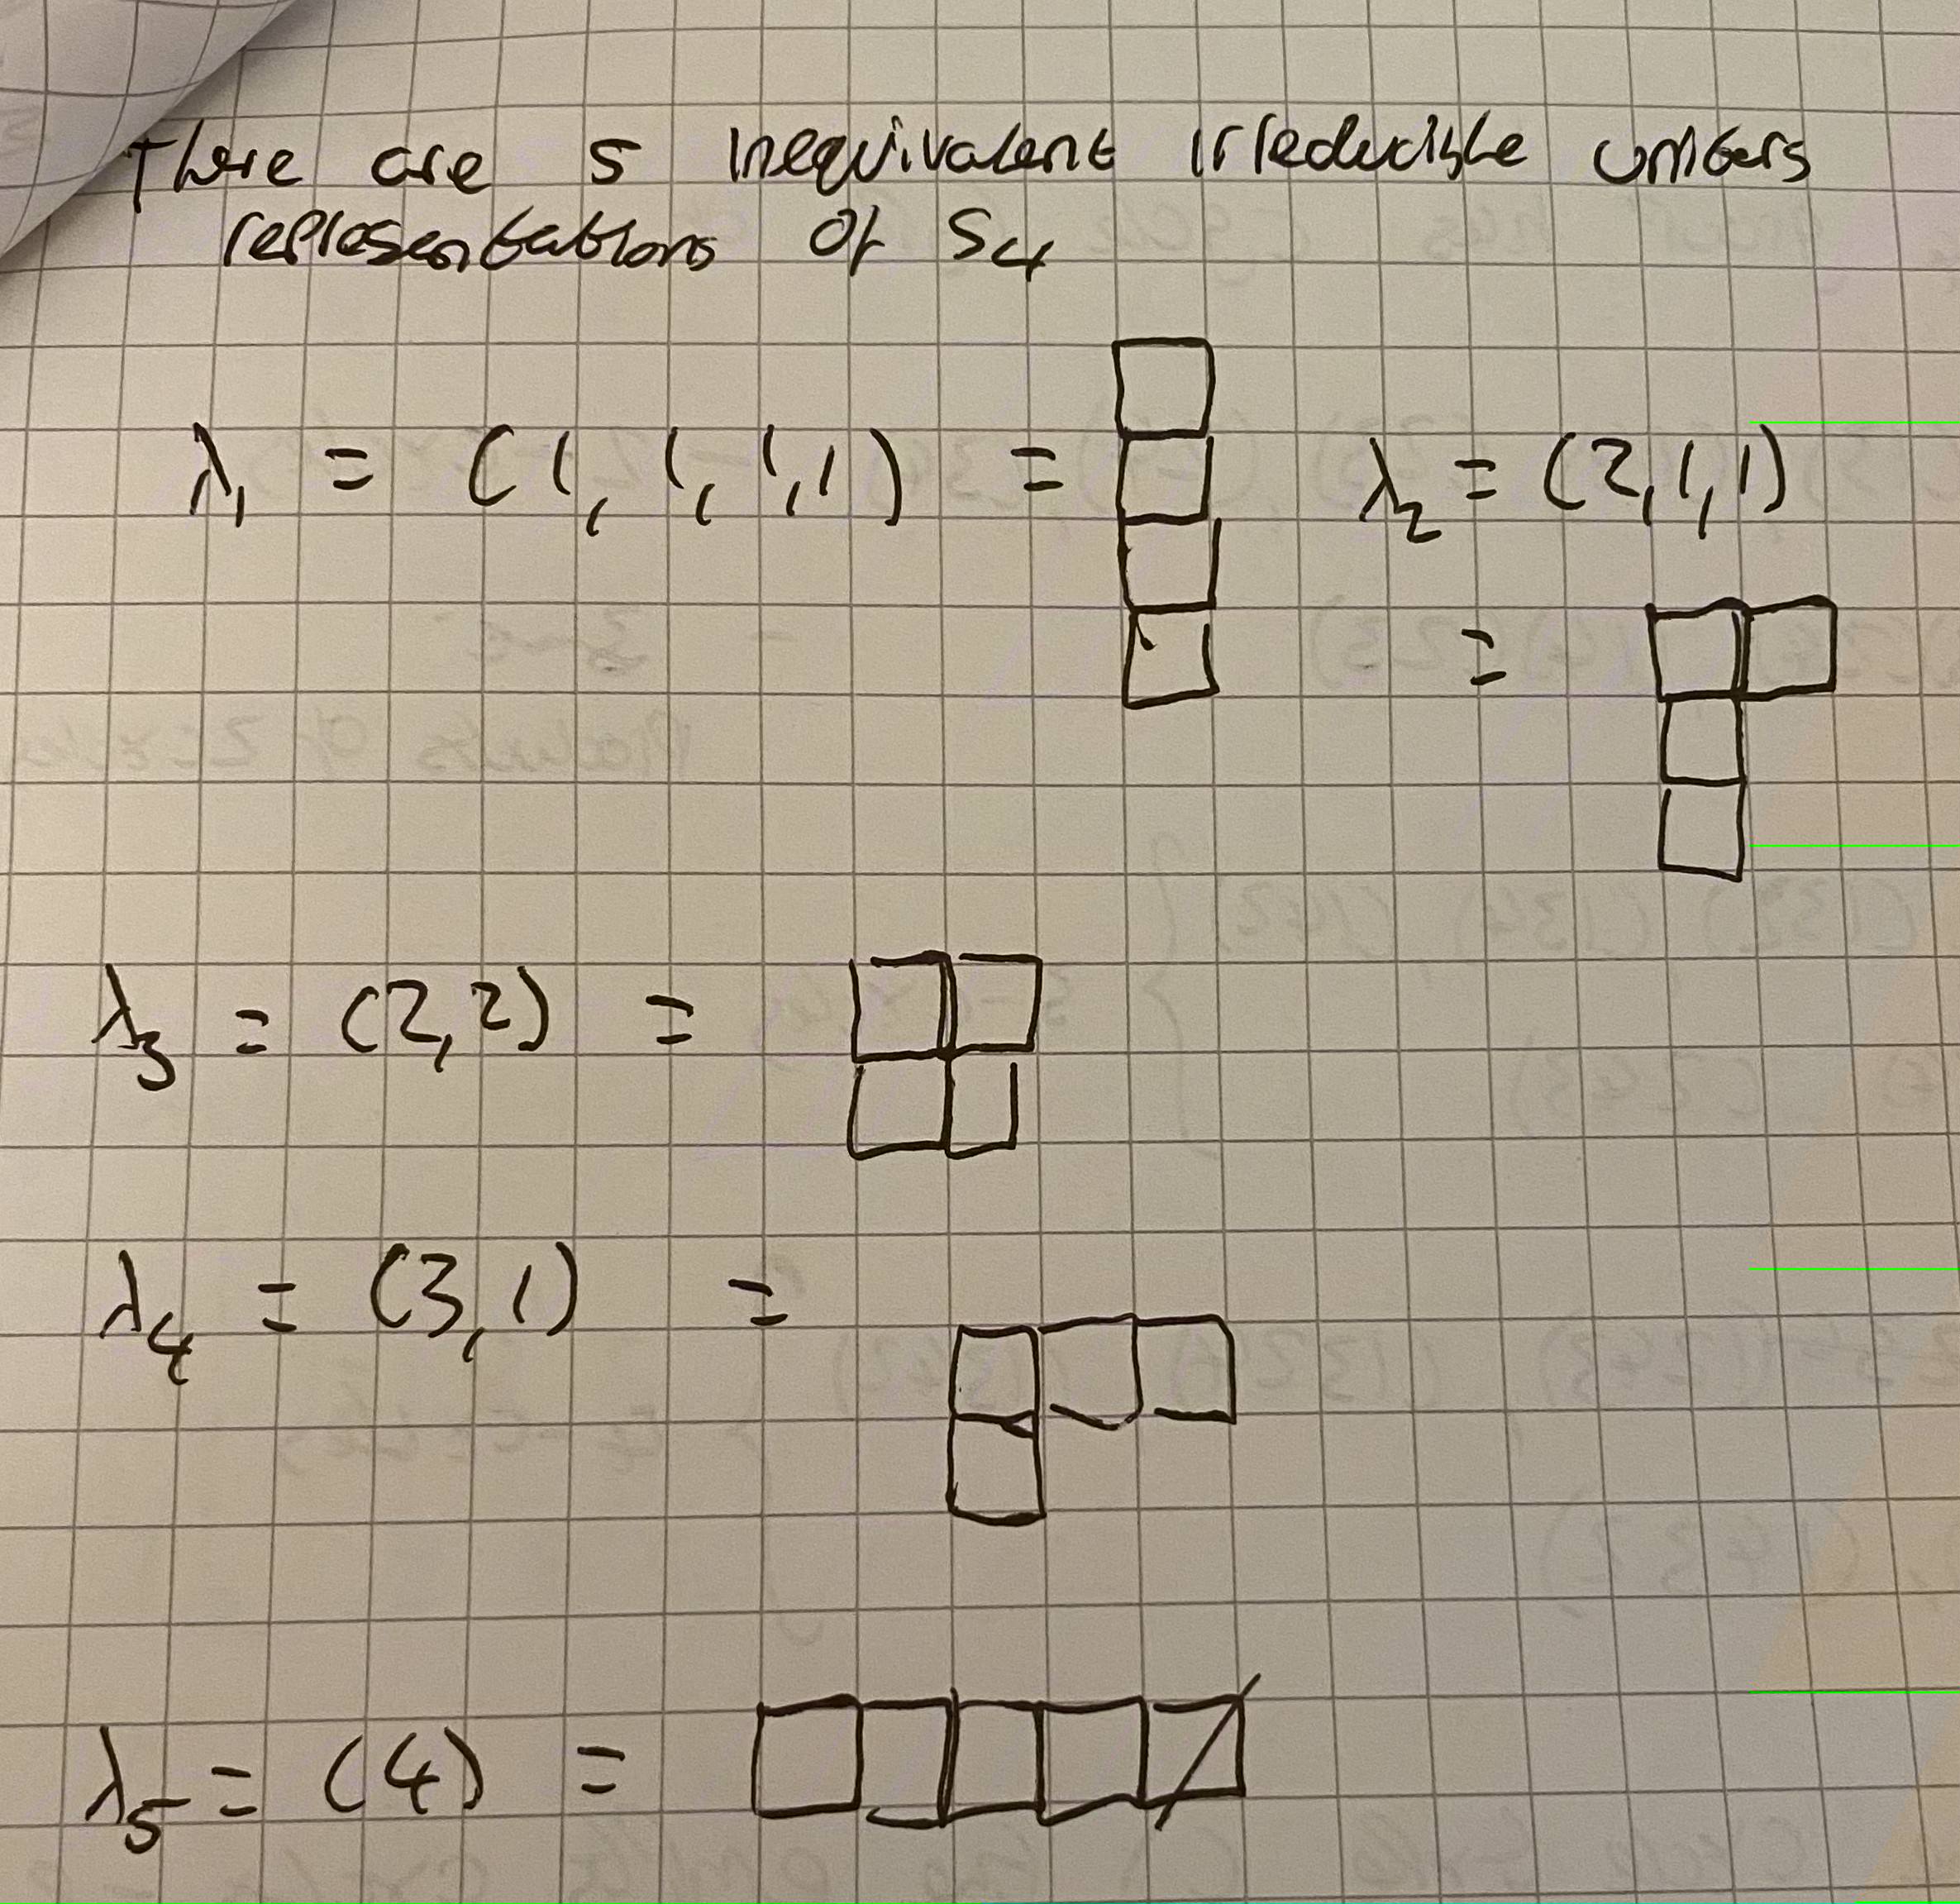 There are 5 inequivalent irreducible unitary
representations of S₄
λ₁ = (1, 1, 1, 1) =
λ₂ = (2, 1, 1)
=
λ₃ = (2, 2) =
λ₄ = (3, 1) =
λ₅ = (4) =